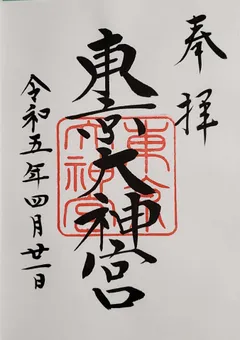 奉拝
東京大神宮
東京大神宮
令和五年四月廿一日